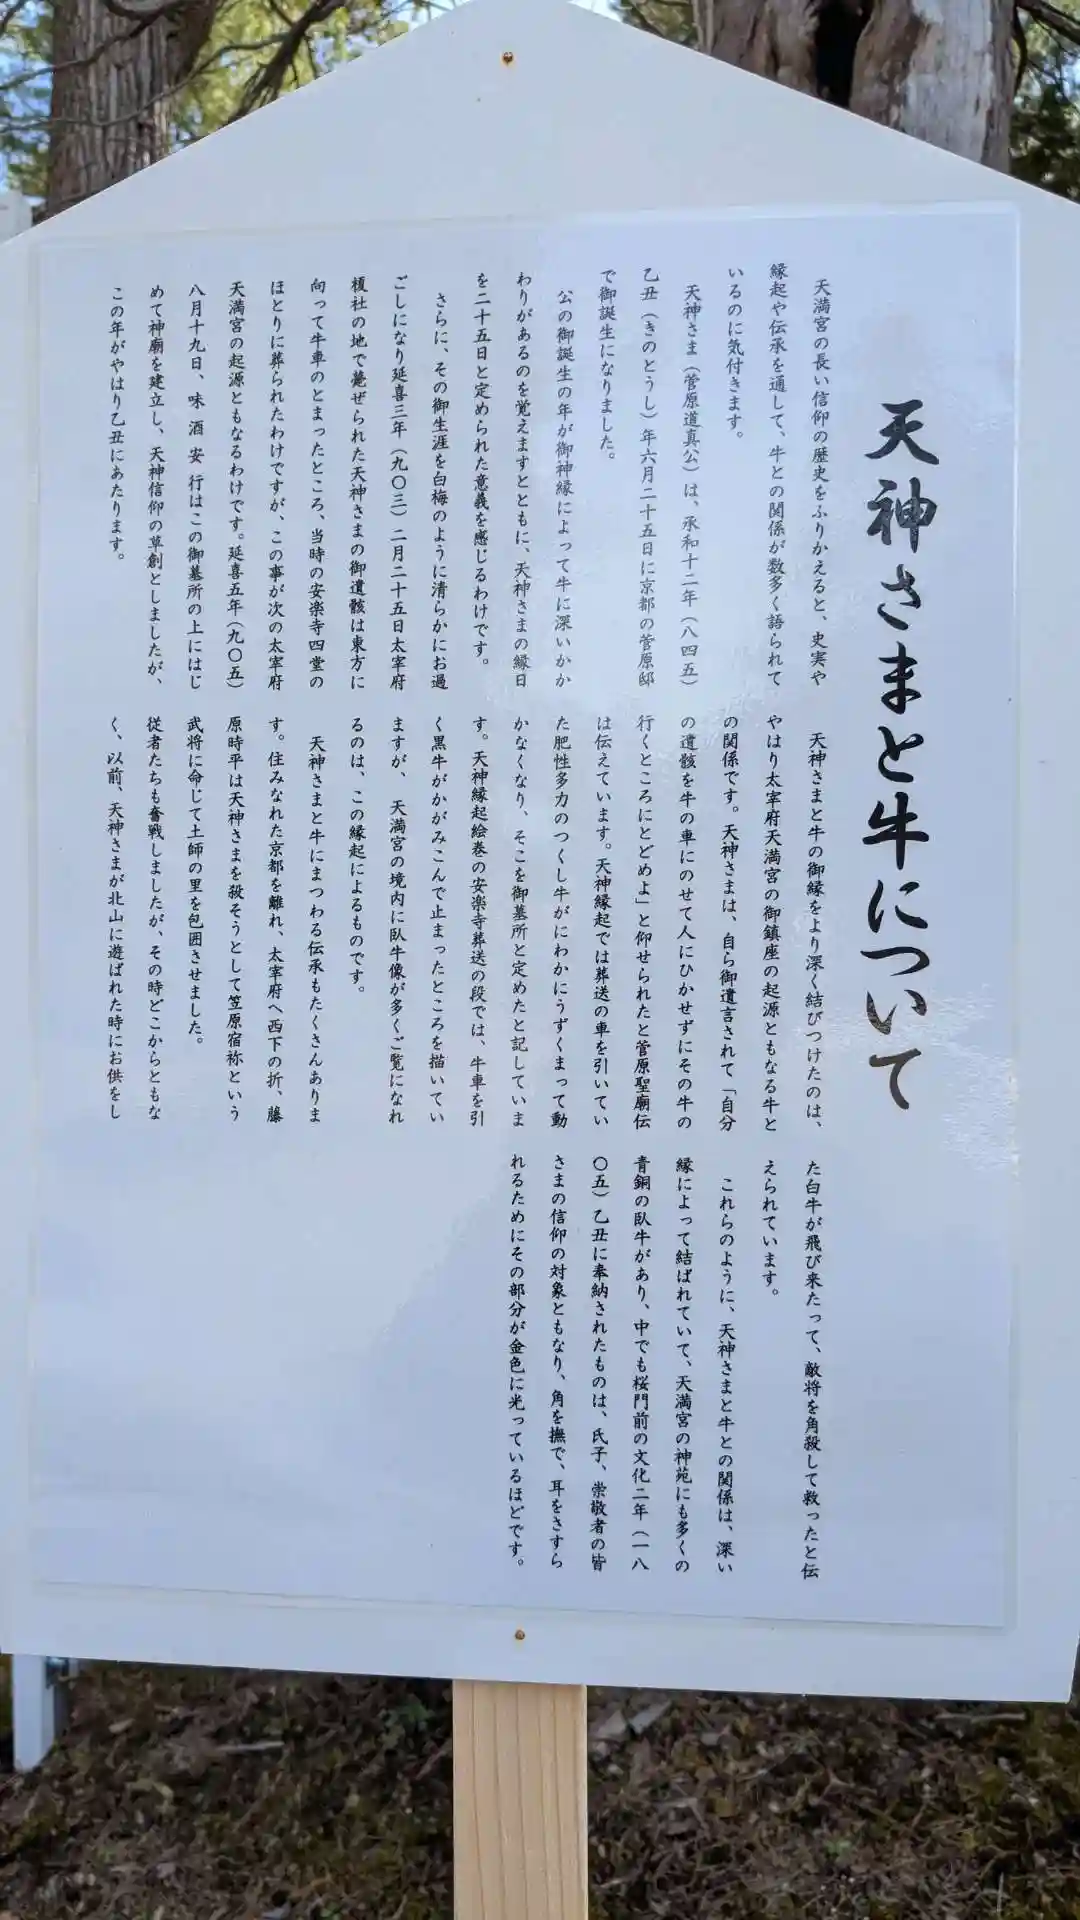 天神さまと牛について
天満宮の長い信仰の歴史をふりかえると、史実や
縁起や伝承を通して、牛との関係が数多く語られて
いるのに気付きます。
天神さま（菅原道真公）は、承和十二年（八四五）
乙丑（きのとうし）年六月二十五日に京都の菅原邸
で御誕生になりました。
公の御誕生の年が御神縁によって牛に深いかか
わりがあるのを覚えますとともに、天神さまの縁日
を二十五日と定められた意義を感じるわけです。
さらに、その御生涯を白梅のように清らかにお過
ごしになり延喜三年（九〇三）二月二十五日太宰府
榎社の地で薨ぜられた天神さまの御遺骸は東方に
向って牛車のとまったところ、当時の安楽寺四堂の
ほとりに葬られたわけですが、この事が次の太宰府
天満宮の起源ともなるわけです。延喜五年（九〇五）
八月十九日、味酒安行はこの御墓所の上にはじ
めて神廟を建立し、天神信仰の草創としましたが、
この年がやはり乙丑にあたります。
天神さまと牛の御縁をより深く結びつけたのは、
やはり太宰府天満宮の御鎮座の起源ともなる牛と
の関係です。天神さまは、自ら御遺言されて「自分
の遺骸を牛の車にのせて人にひかせずにその牛の
行くところにとどめよ」と仰せられたと菅原聖廟伝
は伝えています。天神縁起では葬送の車を引いてい
た肥性多力のつくし牛がにわかにうずくまって動
かなくなり、そこを御墓所と定めたと記していま
す。天神縁起絵巻の安楽寺葬送の段では、牛車を引
く黒牛がかがみこんで止まったところを描いてい
ますが、天満宮の境内に臥牛像が多くご覧になれ
るのは、この縁起によるものです。
天神さまと牛にまつわる伝承もたくさんありま
す。住みなれた京都を離れ、太宰府へ西下の折、藤
原時平は天神さまを殺そうとして笠原宿祢という
武将に命じて土師の里を包囲させました。
従者たちも奮戦しましたが、その時どこからともな
く、以前、天神さまが北山に遊ばれた時にお供をし
た白牛が飛び来たって、敵将を角殺して救ったと伝
えられています。
これらのように、天神さまと牛との関係は、深い
縁によって結ばれていて、天満宮の神苑にも多くの
青銅の臥牛があり、中でも桜門前の文化二年（一八
〇五）乙丑に奉納されたものは、氏子、崇敬者の皆
さまの信仰の対象ともなり、角を撫で、耳をさすら
れるためにその部分が金色に光っているほどです。